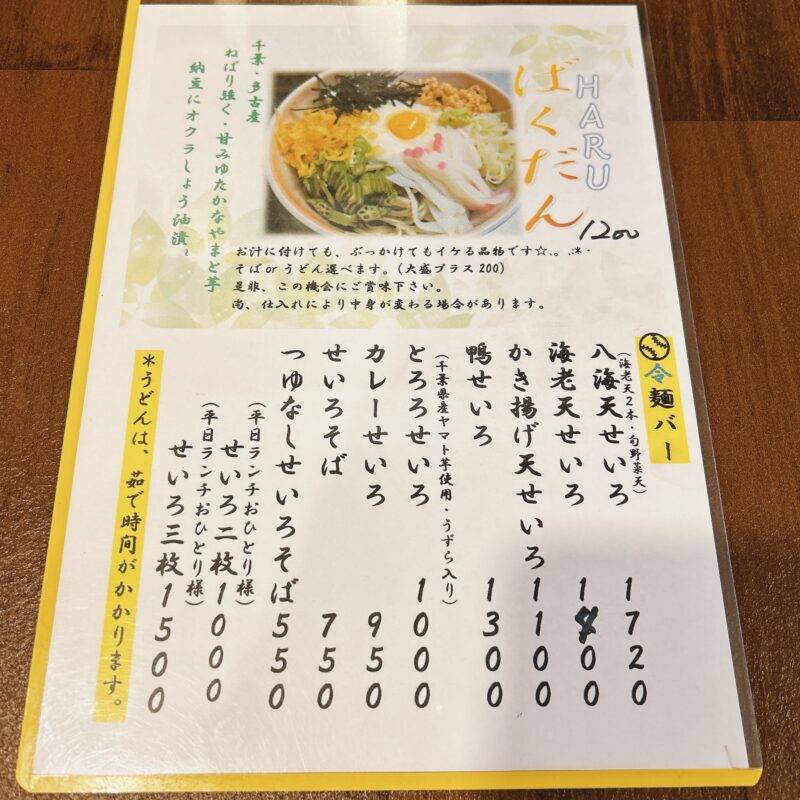 HARU
ばくだん
1200
千葉・多古産
ねばり強く・甘みゆたかなやまと芋
納豆にオクラしょう油漬~
お汁に付けても、ぶっかけてもイケる品物です☆.。.:*・
そばorうどん選べます。(大盛プラス200)
是非、この機会にご賞味下さい。
尚、仕入れにより中身が変わる場合があります。
冷麺バー
八海天せいろ 1720
(海老天2本・旬野菜天)
海老天せいろ
かき揚げ天せいろ 1100
鴨せいろ 1300
とろろせいろ 1000
(千葉県産ヤマト芋使用・うずら入り)
カレーせいろ 950
せいろそば 750
つゆなしせいろそば 550
せいろ二枚 1000
(平日ランチおひとり様)
せいろ三枚 1500
(平日ランチおひとり様)
*うどんは、茹で時間がかかります。